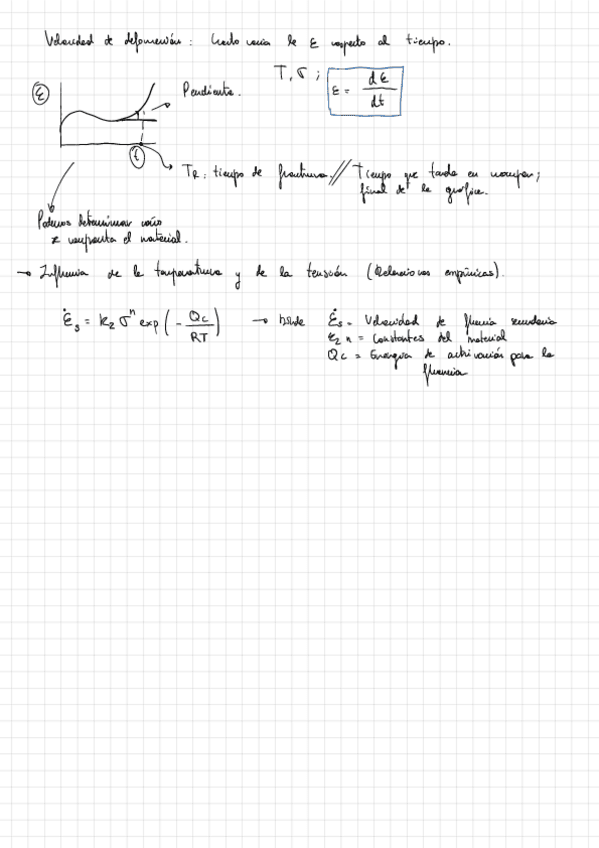 Velocidad de deformación: Cuanto varía la ε respecto al tiempo.
T, σ ; ε = dε / dt
ε
Pendiente.
t
TR: tiempo de fractura // Tiempo que tarda en romper;
final de la gráfica.
Podemos determinar como
se comporta el material.
→ Influencia de la temperatura y de la tensión (Relaciones empíricas).
ε̇s = k2 σ^n exp ( - Qc / RT ) → Donde ε̇s = Velocidad de fluencia secundaria
k2 n = Constantes del material
Qc = Energía de activación para la
fluencia